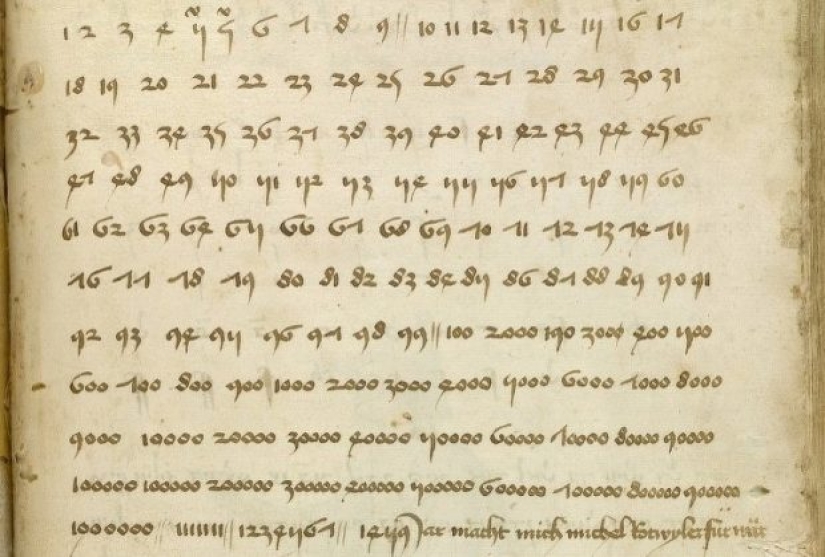 1 2 3 4 5 5 6 7 8 9 // 10 11 12 13 14 15 16 17
18 19 20 21 22 23 24 25 26 27 28 29 30 31
32 33 34 35 36 37 38 39 40 41 42 43 44 45 46
47 48 49 50 51 52 53 54 55 56 57 58 59 60
61 62 63 64 65 66 67 68 69 70 71 72 73 74 75
76 77 78 79 80 81 82 83 84 85 86 87 88 89 90 91
92 93 94 95 96 97 98 99 // 100 2000 190 3000 400 500
600 700 800 900 1000 2000 3000 4000 5000 6000 7000 8000
9000 10000 20000 30000 40000 50000 60000 70000 80000 90000
100000 100000 200000 300000 400000 500000 600000 700000 800000 900000
1000000 // 1234567 // 1459 Jar macht mich michel Rotwyler für